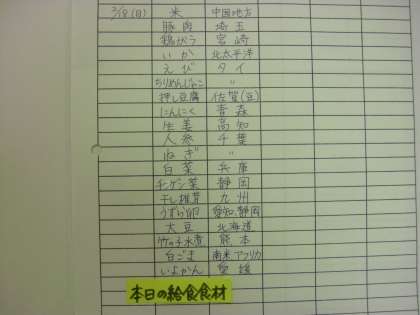 2/18(月) 米 中国地方
豚肉 埼玉
鶏がら 宮崎
いか 北太平洋
えび タイ
ちりめんじゃこ 〃
押し豆腐 佐賀(豆)
にんにく 青森
生姜 高知
人参 千葉
ねぎ 〃
白菜 兵庫
チンゲン菜 静岡
干し椎茸 九州
うずら卵 愛知、静岡
大豆 北海道
竹の子水煮 熊本
白ごま 南米、アフリカ
いよかん 愛媛
本日の給食食材